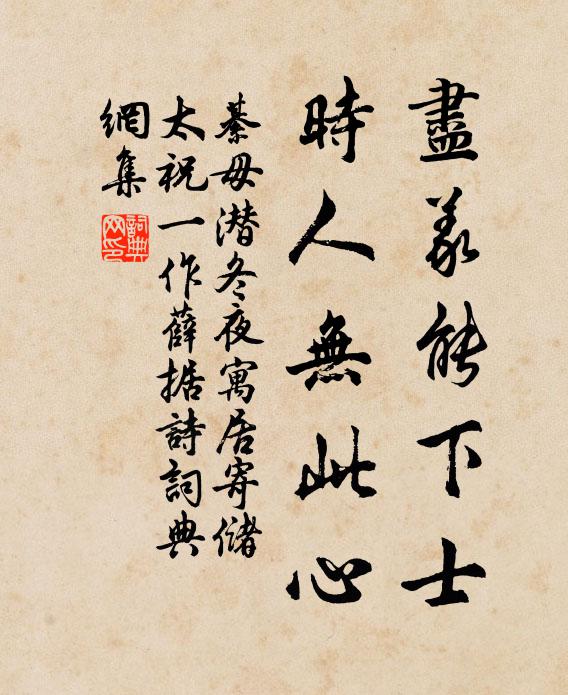 盡義能下士
時人無此心
綦毋潜冬夜寓居寄儲
太祝一作薛据詩詞典
網集
詞典
网印